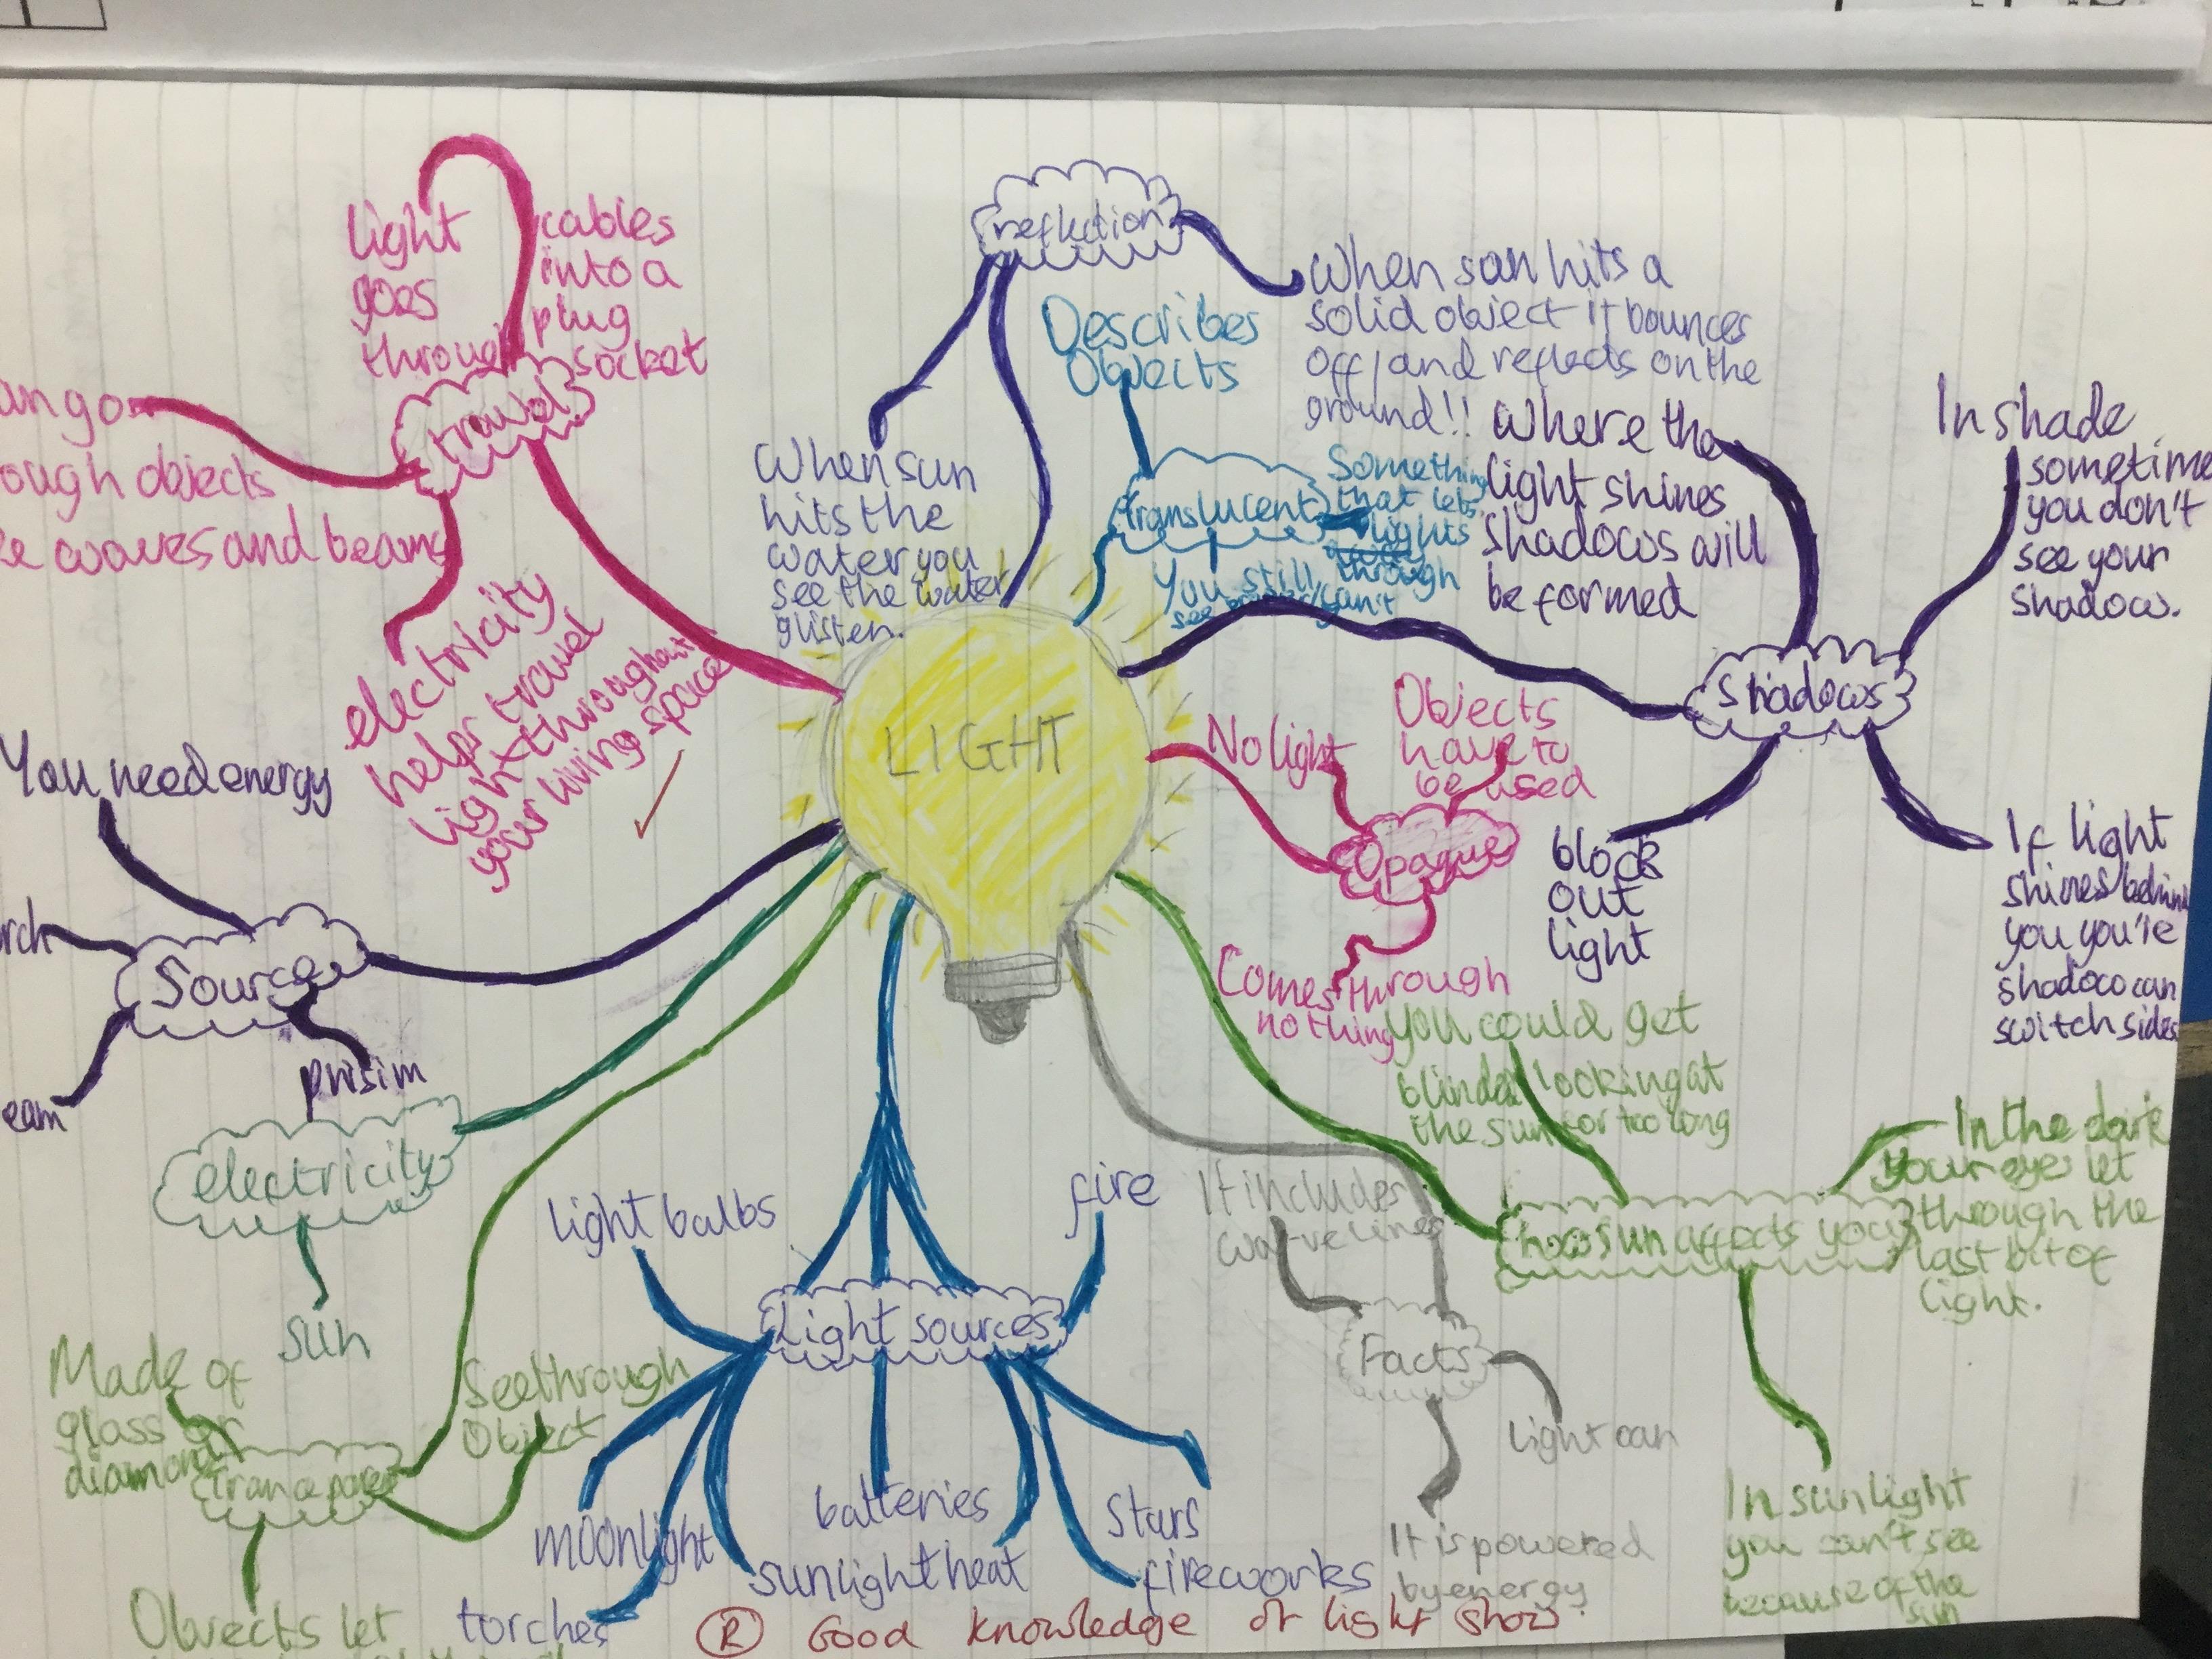 light
goes
through
cables
into a
plug
socket
travel
ough objects
waves and beams
electricity
helps travel
light throughout
your living space
reflection
When sun hits a
solid object it bounces
off/and reflects on the
ground!!
When sun
hits the
water you
see the water
glisten.
Describes
Objects
translucent
Something
that lets
lights
through
You still
see can't
see
Where the
light shines
shadows will
be formed
In shade
sometime
you don't
see your
shadow.
Shadows
block
out
light
If light
shines behind
you you're
shadow can
switch sides
LIGHT
No light
Objects
have to
be used
Opaque
Comes through
nothing
You need energy
Source
rch
eam
prisim
electricity
sun
You could get
blinded looking at
the sun for too long
how sun affects you
In the dark
your eyes let
through the
last bit of
light.
In sunlight
you can't see
because of the
sun
It includes
Facts
light can
It is powered
by energy.
light bulbs
fire
Light sources
moonlight
batteries
Stars
sunlight
heat
fireworks
torches
Made of
glass or
diamond
See through
Object
Objects let
R Good knowledge of light show.